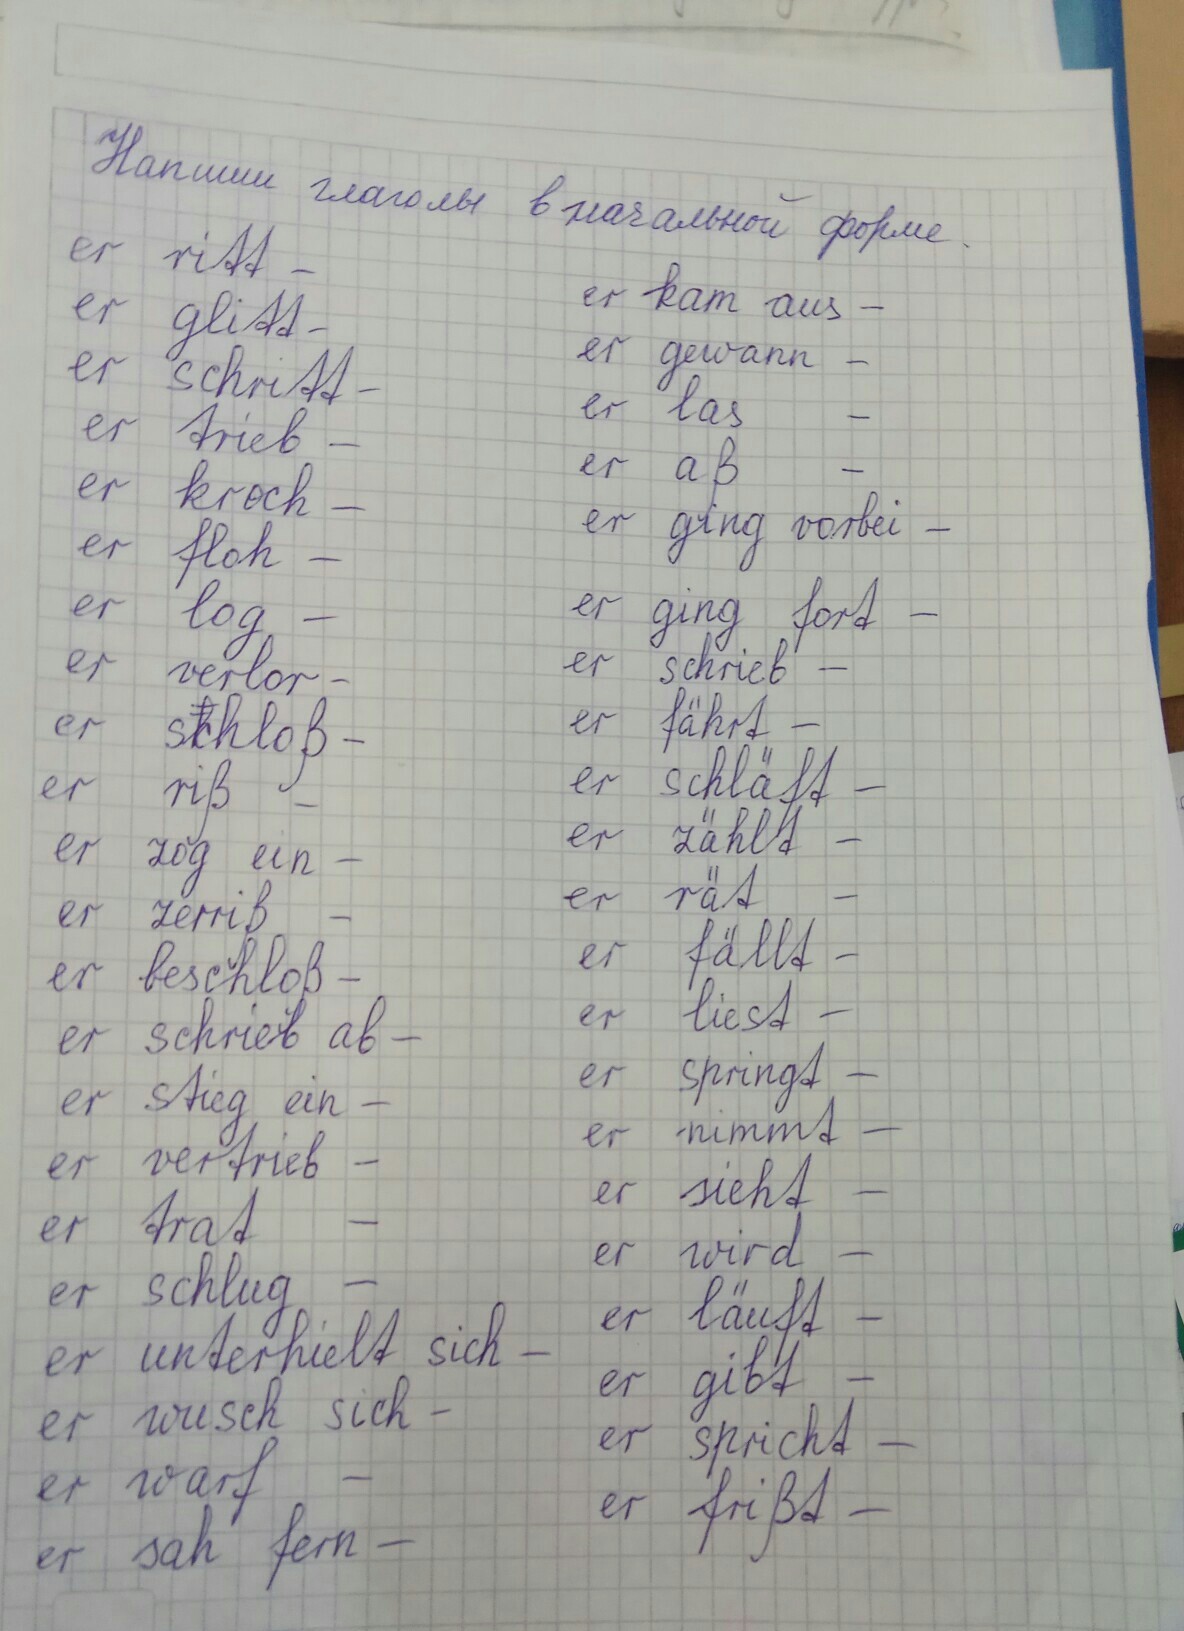 Напиши глаголы в начальной форме.
er ritt –
er glitt –
er schritt –
er trieb –
er kroch –
er floh –
er log –
er verlor –
er schloß –
er riß –
er zog ein –
er zerriß –
er beschloß –
er schrieb ab –
er stieg ein –
er vertrieb –
er trat –
er schlug –
er unterhielt sich –
er wusch sich –
er warf –
er sah fern –
er kam aus –
er gewann –
er las –
er aß –
er ging vorbei –
er ging fort –
er schrieb –
er fährt –
er schläft –
er zählt –
er rät –
er fällt –
er liest –
er springt –
er nimmt –
er sieht –
er wird –
er läuft –
er gibt –
er spricht –
er frißt –